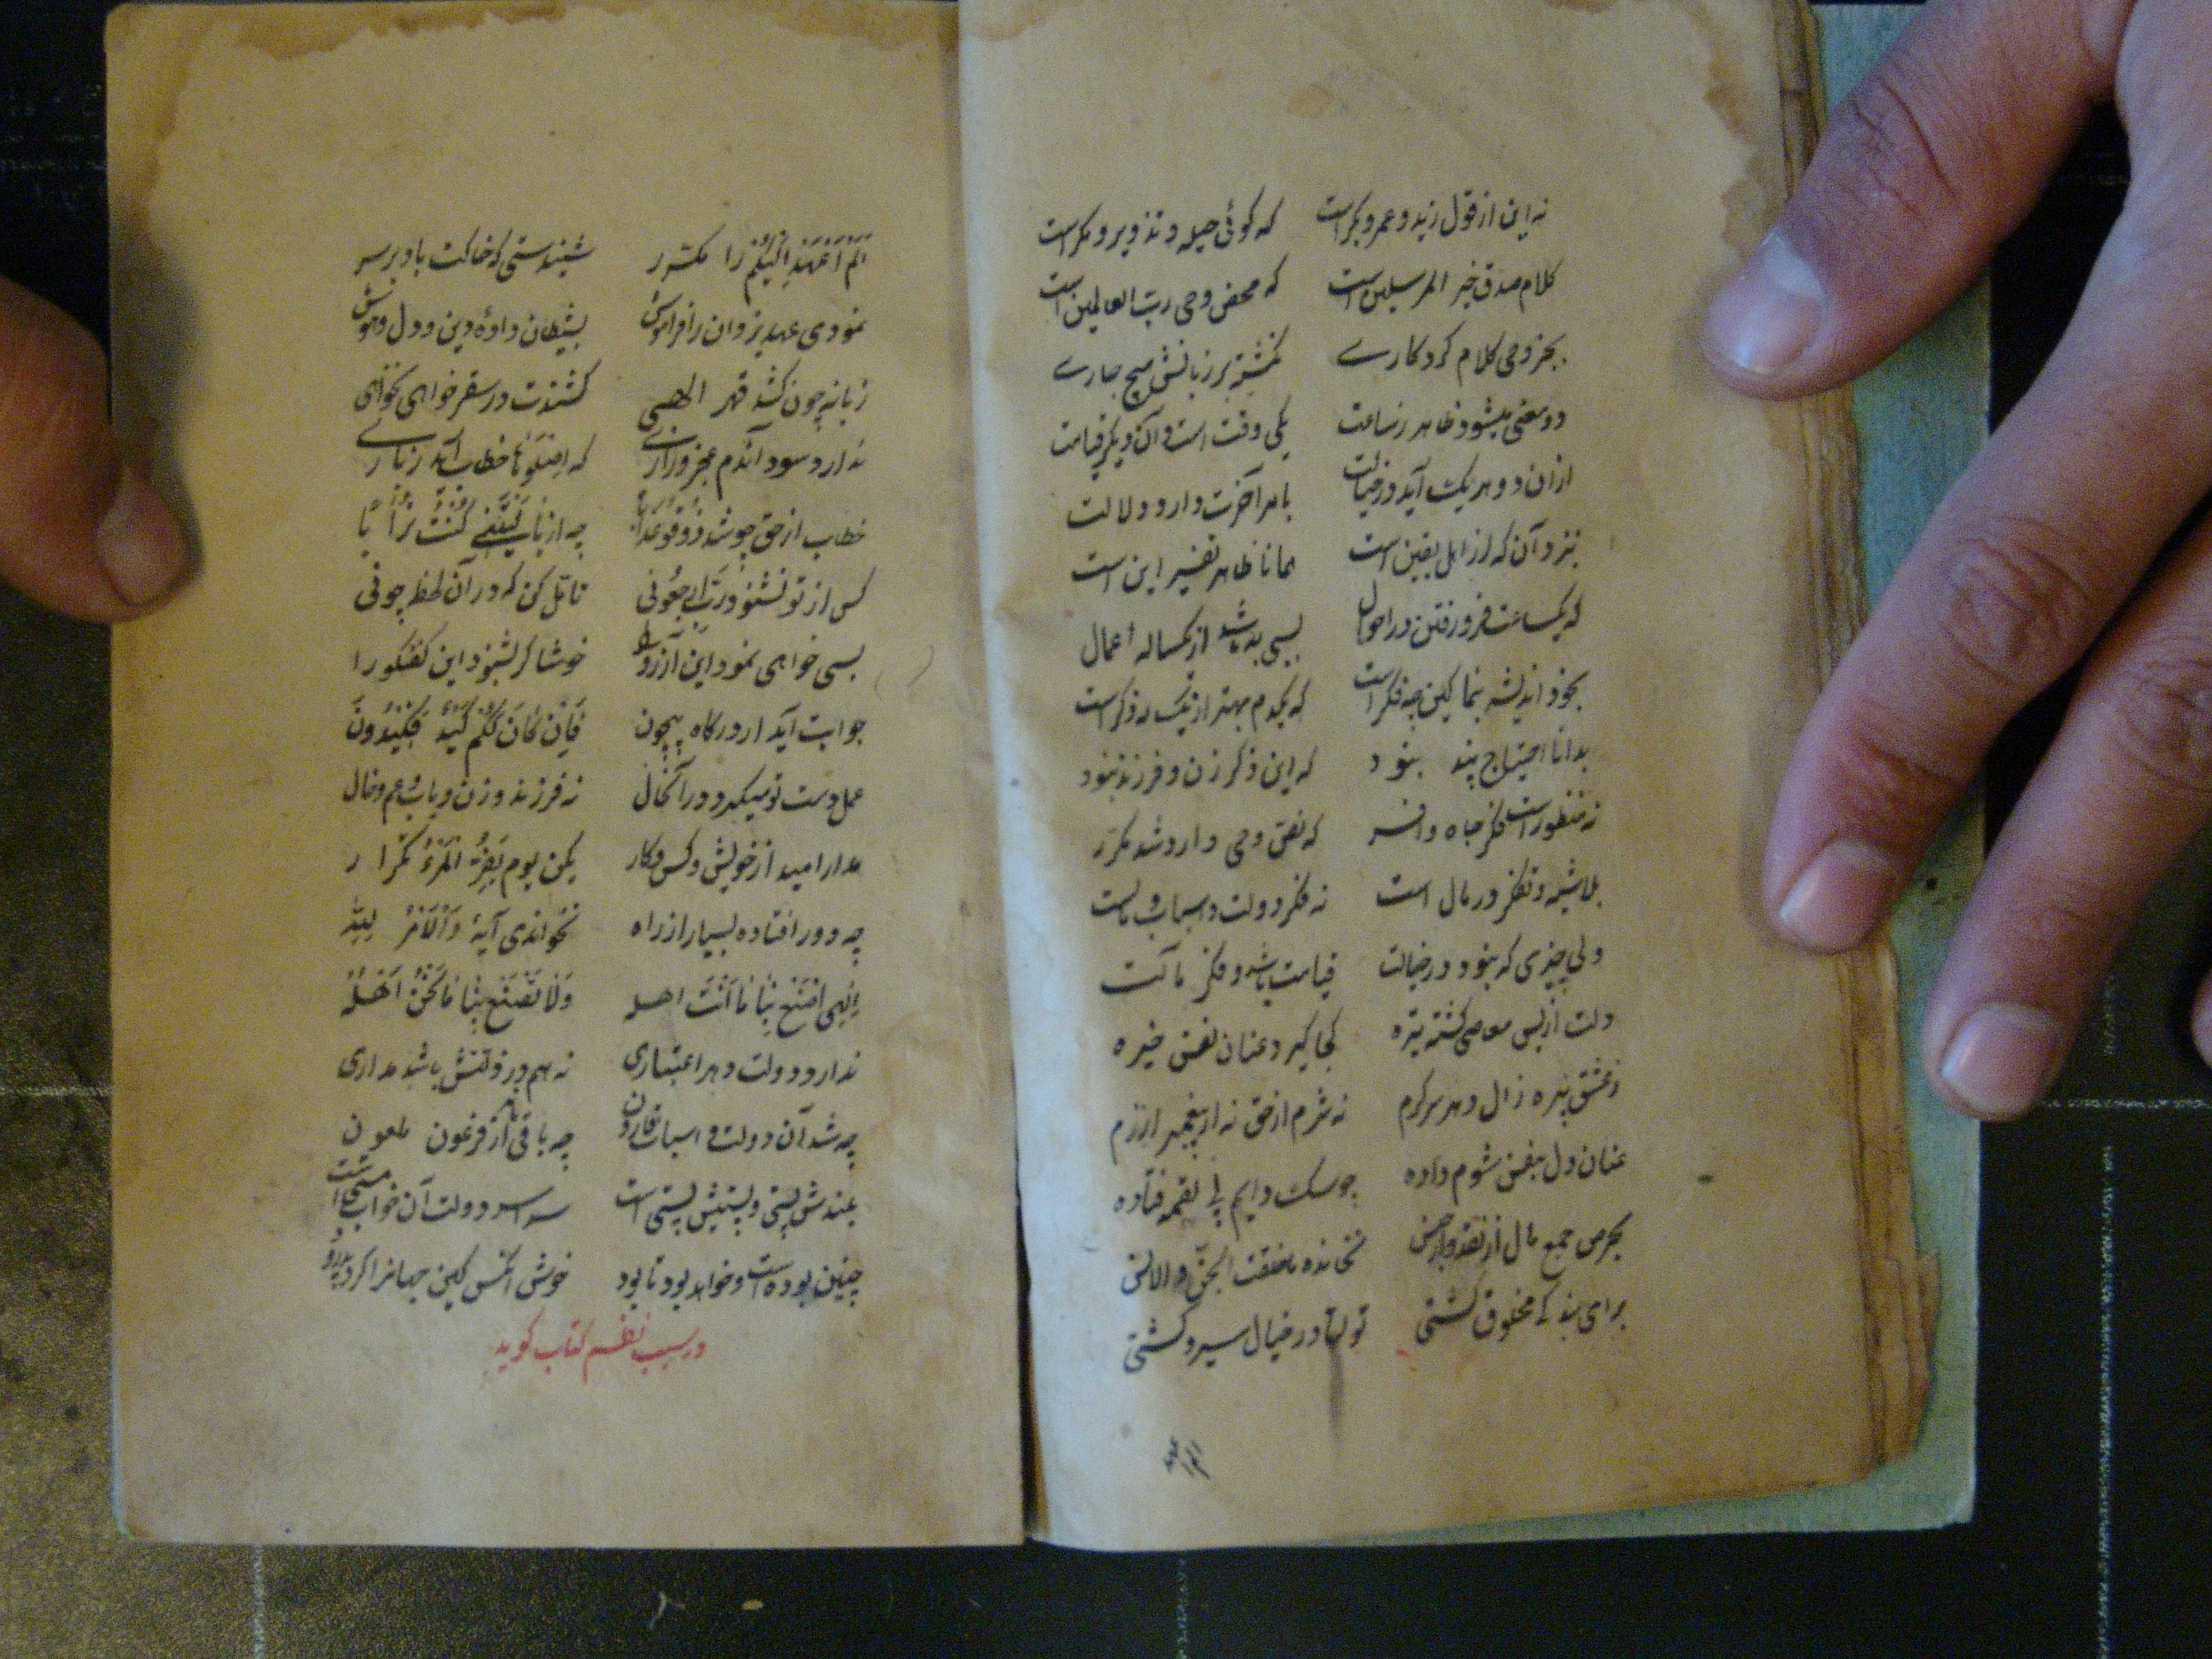 نه این از قول زید و عمرو بکر است که گوئی حیله و تذویر و مکر است
کلام صدق خیر المرسلین است که محض وحی رب العالمین است
بجز وحی کلام کردکارے نگشته بر زبانش هیچ جارے
دو معنی میشود ظاهر ز ساعت یکی وقت است و آن دیگر قیامت
ازان دو هر یک آید در خیالت بامر آخرت دارد دلالت
بنزد آن که از اهل یقین است همانا ظاهر تفسیر این است
که یکساعت فرو رفتن در احوال بسی به باشد از یکساله اعمال
بخود اندیشه بنما کین چه فکر است که یکدم بهتر از یکساله ذکر است
بدانا احتیاج پند نبود که این ذکر زن و فرزند نبود
نه منظور است فکر جاه و افسر که نص وحی وارد شد مکرر
بلا شبه و تفکر در مال است نه فکر دولت و اسباب و مالست
ولی چیزی که نبود در خیالت قیامت باشد و فکر مآلت
دلت از بس معاصی گشته تیره کجا گیرد عنان نفس خیره
ز عشق پیره زال دهر سرگرم نه شرم از حق نه از پیغمبر آزرم
عنان دل بنفس شوم داده چو سگ دایم پی لقمه فتاده
بحرص جمع مال از نقد و از جنس نخوانده ما خلقت الجن والانس
برای بندگے مخلوق گشتی تو اندر خیال سیر و گشتی
الم اعهد
اَلَمْ اَعْهَدْ اِلَیْکُمْ را مکرر شنیدستی که خاکت باد بر سر
نمودی عهد یزدان را فراموش بشیطان دادهٔ دین و دل و هوش
زبانیه چون کشد قهر الهی کشندت در سقر خواهی نخواهی
ندارد سود آندم عجز و زارے که اِخْسَئُوا خطاب آید ز بارے
خطاب از حق چو شد ذُوقُوا عَذَابًا چه از یَا لَیْتَنِے کُنْتُ تُرَابًا
کس از تو نشنود رَبِّ ارْجِعُونی تامل کن که در آن لحظه چونی
بسی خواهی نمود این آرزو را خوشا گر بشنود این گفتگو را
جوابت آید از درگاه بیچون فَاِنْ کَانَ لَکُمْ کَیْدٌ فَکِیدُونَ
عمل دست تو میگیرد در آنحال نه فرزند و زن و باب و عم و خال
مدار امید از خویش و کس و کار بکن یوم یَفِرُّ الْمَرْءُ تکرار
چه دور افتاده بسیار از راه نخواندی آیهٔ وَالْاَمْرُ لِلّٰه
اِلٰهِی اصْنَعْ بِنَا مَا اَنْتَ اهله وَلَا تَصْنَعْ بِنَا مَا نَحْنُ اَهْلُهُ
ندارد دولت دهر اعتباری نه هم در ذلتش باشد مداری
چه شد آن دولت و اسباب قارون چه باقی ماند از فرعون ملعون
بلندش پستی و پستیش پستی است سراسر دولت آن خواب مستی است
چنین بوده است و خواهد بود تا بود خوش آنکس کین جهانرا کرد پدرود
در سبب نظم کتاب گوید